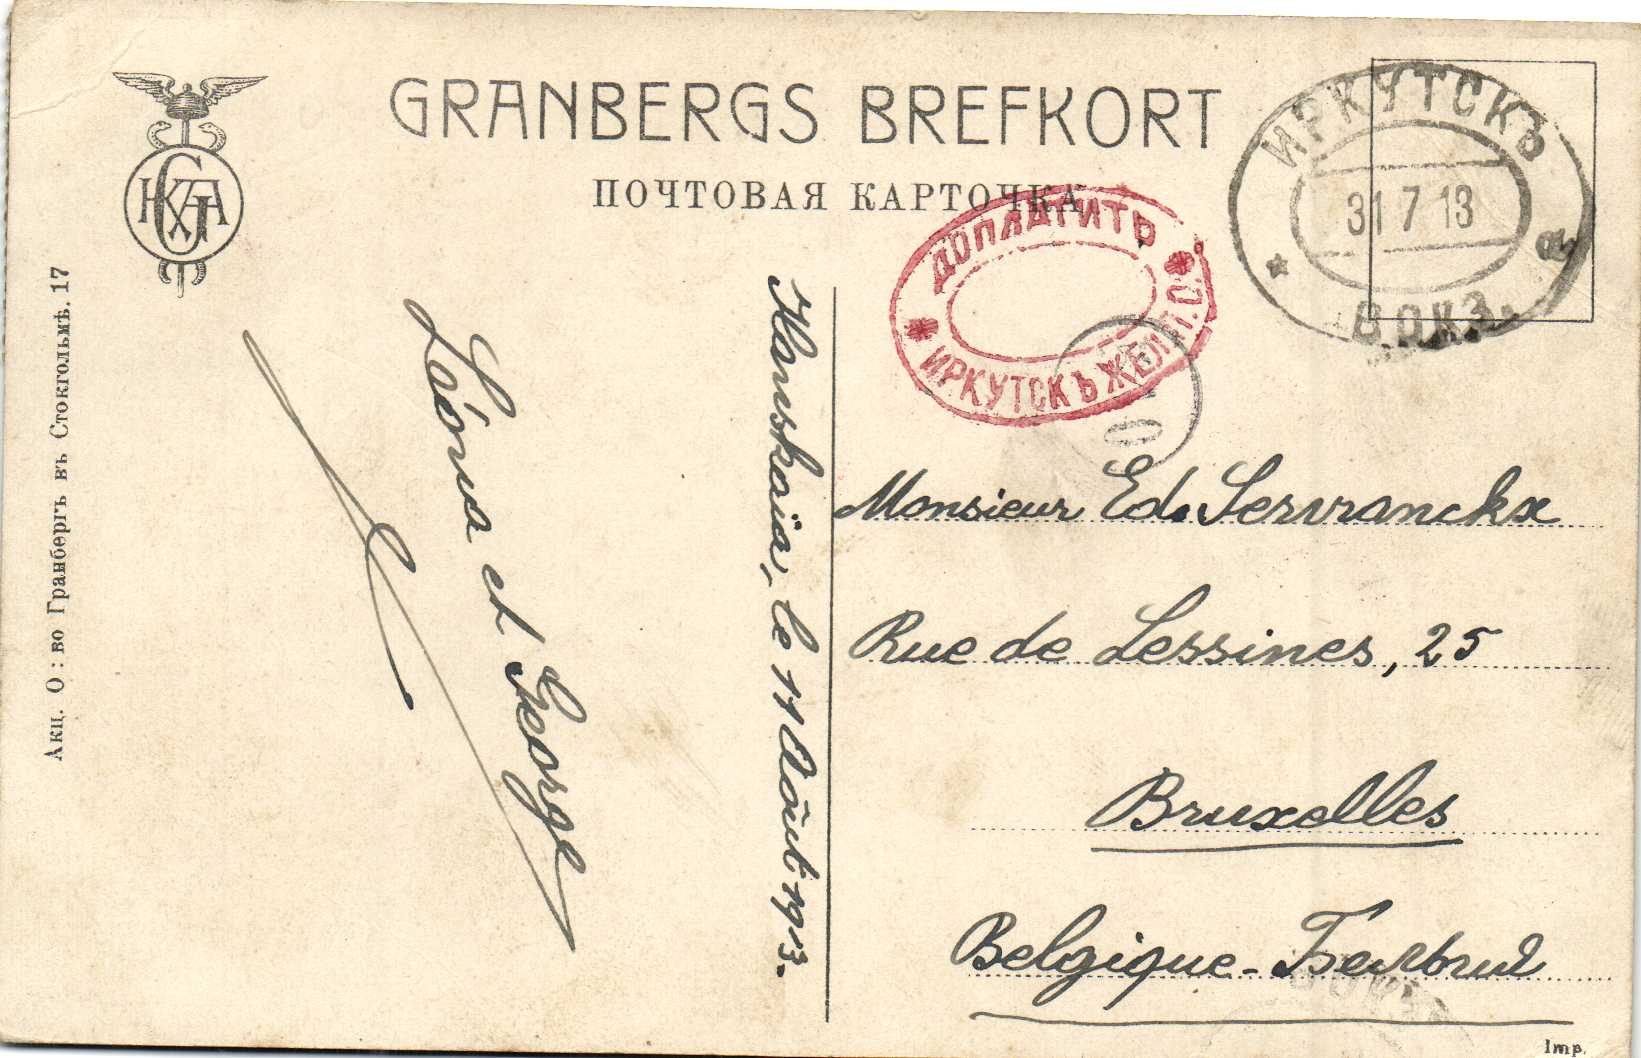 GRANBERGS BREFKORT
ПОЧТОВАЯ КАРТОЧКА
ИРКУТСКЪ
31 7 13
ВОКЗ.
ДОПЛАТИТЬ
ИРКУТСКЪ ЖЕЛ. П. О.
Акц. О: во Гранбергъ въ Стокгольмѣ. 17
Kanskaïa, le 11 Août 1913.
et George
Monsieur Ed. Servranckx
Rue de Lessines, 25
Bruxelles
Belgique - Бельгия
Imp.